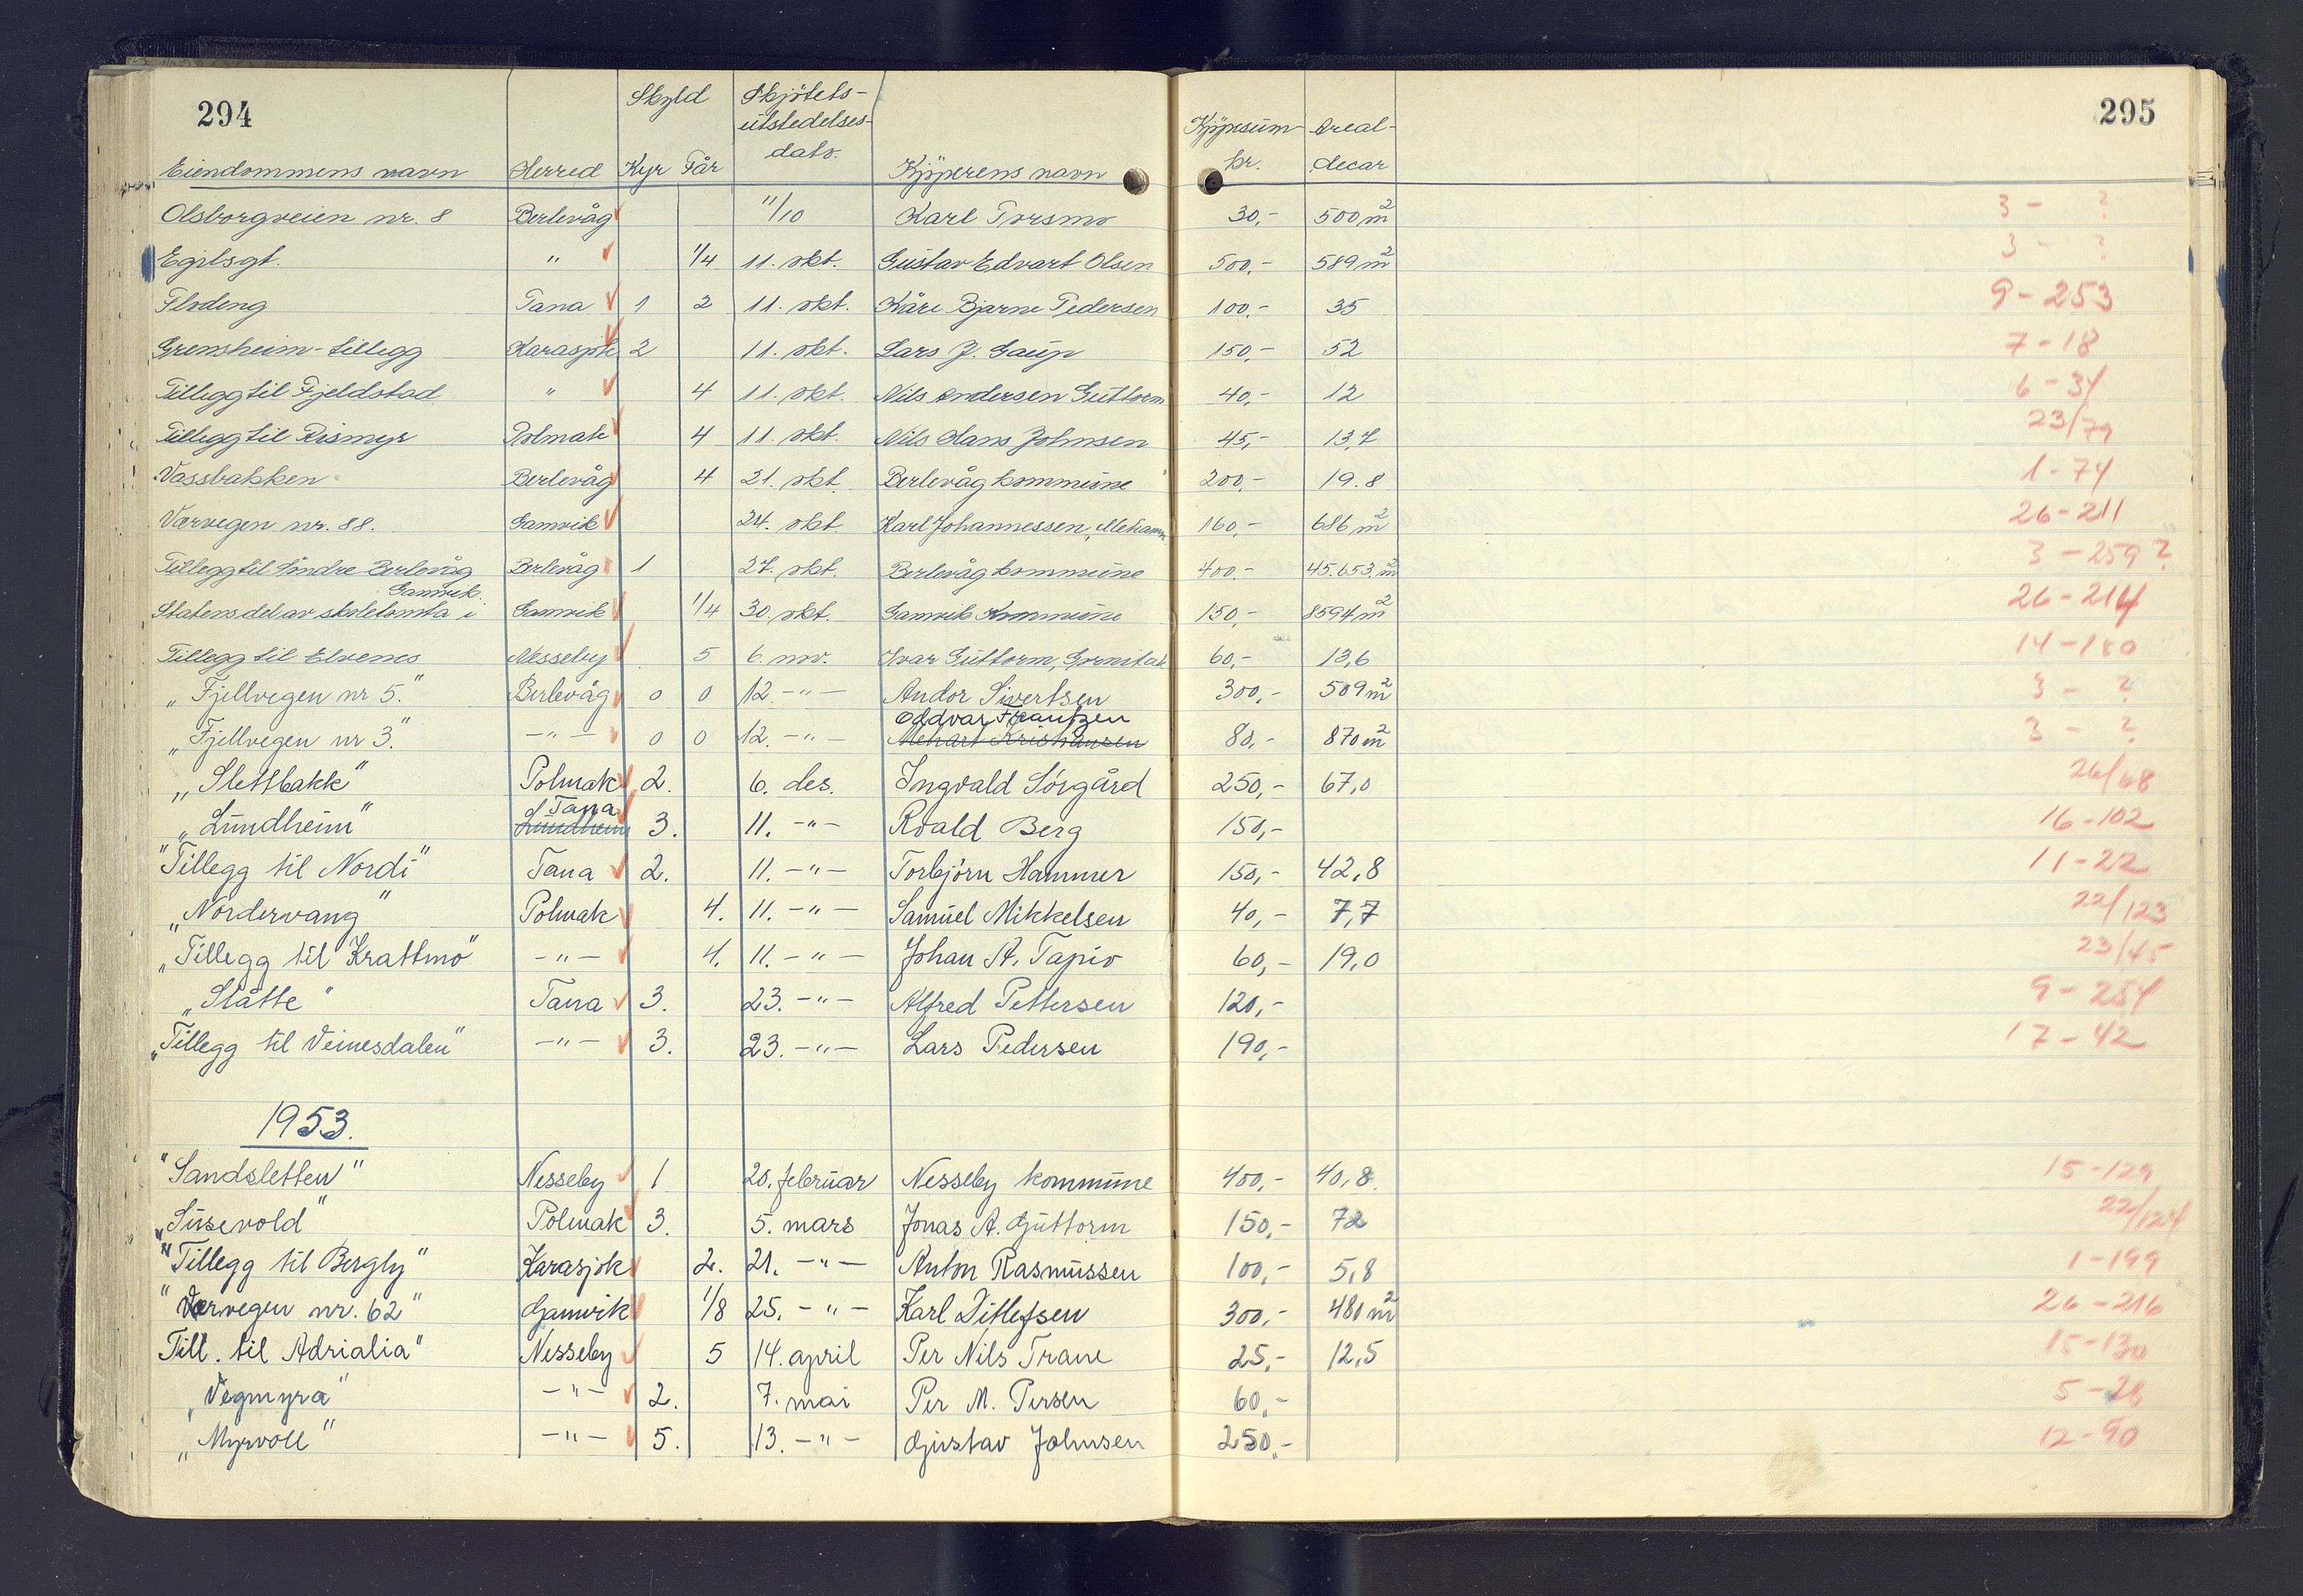 294 295
Skyld Skjøtets-
utstedelses- Kjøpesum Areal-
Eiendommens navn Herred Kyr Får dato. Kjøperens navn kr. decar
Olsborgveien nr. 8 Berlevåg 11/10 Karl Torsmo 30,- 500 m2 3 - ?
Egilsgt. " 1/4 11. okt. Gustav Edvart Olsen 500,- 589 m2 3 - ?
Flodeng Tana 1 2 11. okt. Kåre Bjarne Pedersen 100,- 35 9-253
Grensheim-tillegg Karasjok 2 11. okt. Lars J. Gaup 150,- 52 7-18
Tillegg til Fjeldstad " 4 11. okt. Nils Andersen Guttorm 40,- 12 6-34
Tillegg til Rismyr Polmak 4 11. okt. Nils Hans Johnsen 45,- 13,7 23/79
Vassbakken Berlevåg 4 21. okt. Berlevåg kommune 200,- 19.8 1-74
Værvegen nr. 88. Gamvik 24. okt. Karl Johannessen, Mehamn 160,- 686 m2 26-211
Tillegg til Indre Berlevåg Berlevåg 1 27. okt. Berlevåg kommune 400,- 45.653 m2 3-259?
Gamvik.
Statens del av skoletomta i Gamvik 1/4 30. okt. Gamvik Kommune 150,- 8594 m2 26-214
Tillegg til Elvenes Nesseby 5 6. nov. Ivar Guttorm, 60,- 13,6 14-180
"Fjellvegen nr 5." Berlevåg 0 0 12 -"- Andor Sivertsen 300,- 509 m2 3 - ?
Oddvar Frantzen
"Fjellvegen nr 3." -"- 0 0 12. -"- 80,- 870 m2 3 - ?
"Slettbakk" Polmak 2. 6. des. Ingvald Sørgård 250,- 67,0 26/68
Tana
"Lundheim" Lundheim 3. 11. -"- Roald Berg 150,- 16-102
"Tillegg til Nordi" Tana 2. 11. -"- Torbjørn Hammer 150,- 42,8 11-22
"Nordervang" Polmak 4. 11. -"- Samuel Mikkelsen 40,- 7,7 22/123
"Tillegg til Krattmo" -"- 4. 11. -"- Johan A. Tapio 60,- 19,0 23/45
"Slåtte" Tana 3. 23. -"- Alfred Pettersen 120,- 9-254
"Tillegg til Veinesdalen" -"- 3. 23. -"- Lars Pedersen 190,- 17-42
1953.
"Sandsletten" Nesseby 1 20. februar Nesseby kommune 400,- 40,8. 15-129
"Susevold" Polmak 3. 5. mars Jonas A. Guttorm 150,- 72 22/124
"Tillegg til Bergly" Karasjok 2. 21. -"- Anton Rasmussen 100,- 5,8 1-199
"Værvegen nr. 62" Gamvik 1/8 25. -"- Karl Ditlefsen 300,- 480 m2 26-216
Till. til Adrialia" Nesseby 5 14. april Per Nils Trane 25,- 12,5 15-130
"Vegmyra" -"- 2. 7. mai Per M. Persen 60,- 5-28
"Myrvoll" -"- 5. 13. -"- Gustav Johnsen 250,- 12-90